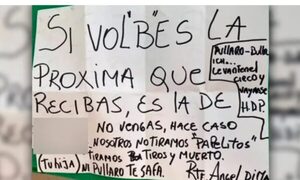 SI VOL"B"ES LA
PROXIMA QUE
RECIBAS, ES LA DE
PULLARO-BULL
ICH...
LEVANTEN EL
CIRCO Y
VAYANSE
H.D.P.
NO VENGAS, HACE CASO
NOSOTRO NOTIRAMOS "PAPELITOS"
TIRAMOS TIROS Y MUERTO.
(TU HIJA) NI PULLARO TE SAFA.